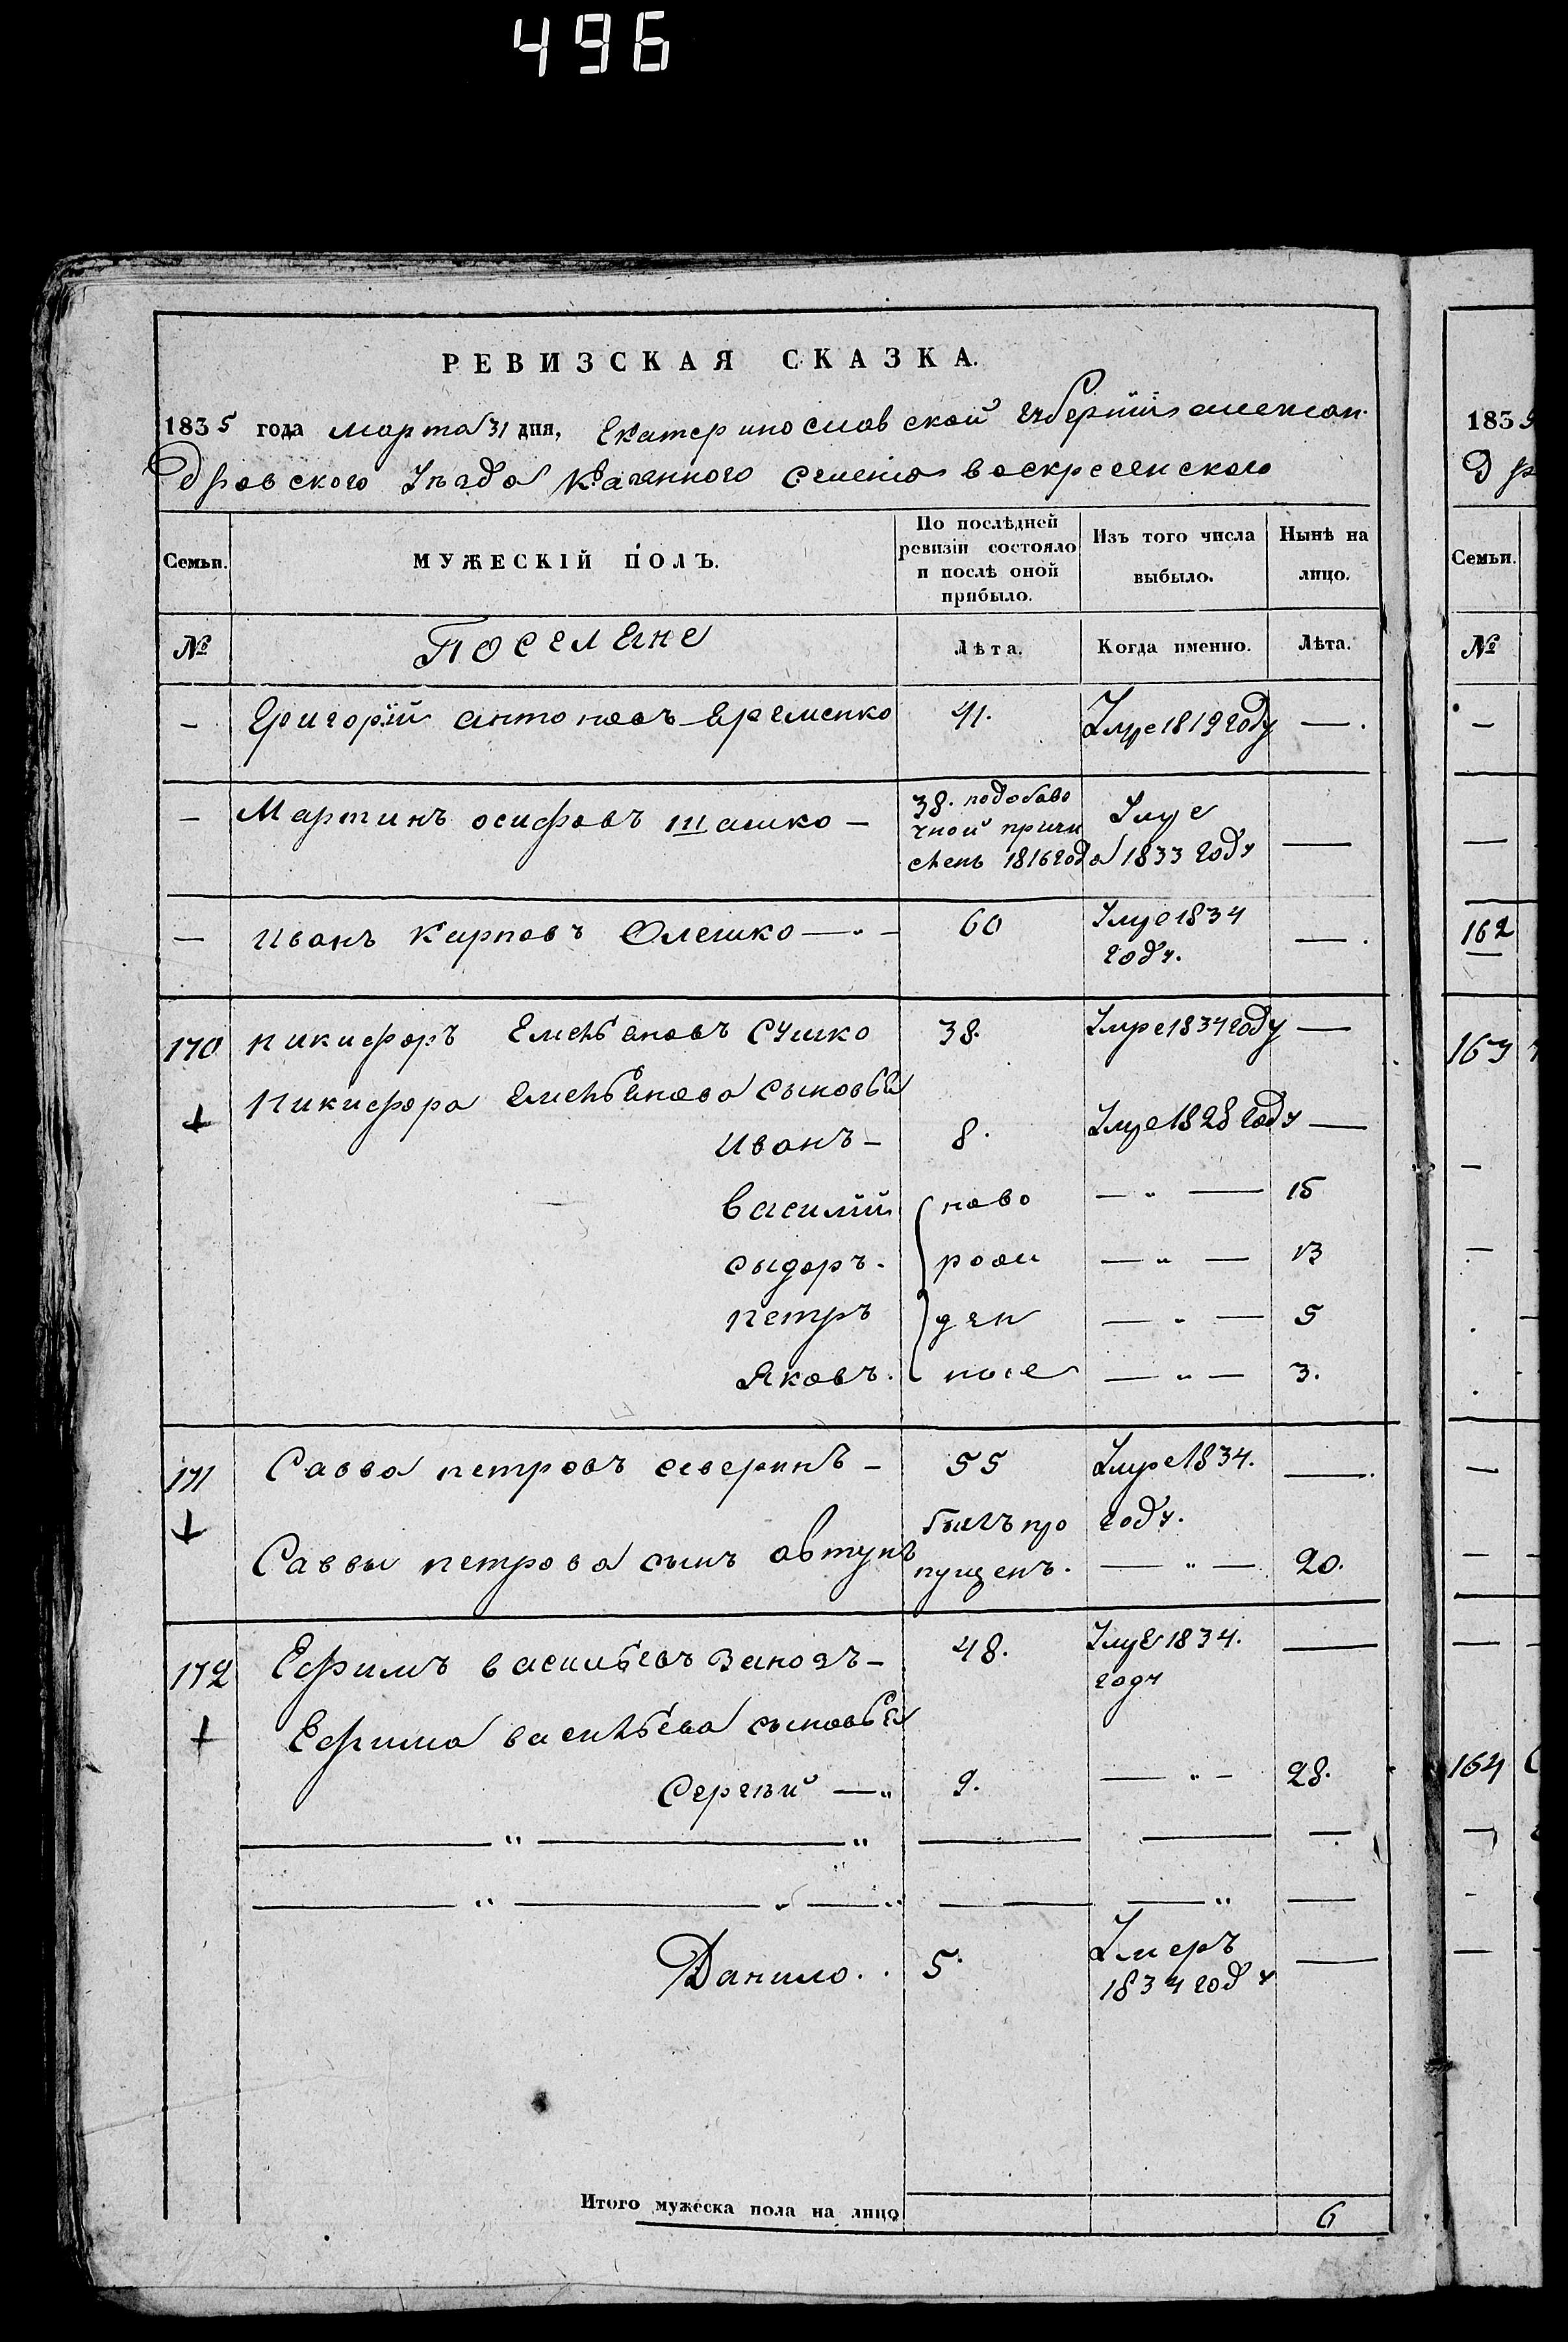 496
РЕВИЗСКАЯ СКАЗКА.
1835 года марта 31 дня, Екатеринославской губернии алексан-
дровского уезда казенного селения воскресенского
Семьи. МУЖЕСКІЙ ПОЛЪ. По послѣдней ревизіи состояло и послѣ оной прибыло. Изъ того числа выбыло. Нынѣ на лицо.
№ Поселяне Лѣта. Когда именно. Лѣта.
— Григорій антоновъ Еременко 41. Умре 1819 году —
— Мартинъ осифовъ Шашко — 38. по добавочной причислен 1816 года Умре 1833 году —
— Иванъ Карповъ Олешко — 60 Умре 1834 году. —
170 Никифоръ Емельяновъ Сушко 38. Умре 1834 году —
Никифора Емельянова сыновья
Иванъ — 8. Умре 1828 году —
Василий ново — " — 15
сыдоръ. рож — " — 13
петръ ден — " — 5
Яковъ. после — " — 3.
171 Савва петровъ северинъ — 55 Умре 1834. году. —
Саввы петрова сынъ автупъ былъ пропущенъ. — " — 20.
172 Ефимъ васильевъ заноза — 48. Умре 1834. году —
Ефима васильева сыновья
Сергѣй — " 9. — " — 28.
Данило. 5. Умеръ 1834 году —
Итого мужеска пола на лицо 6
1835
др
Семьи.
№
162
163
164